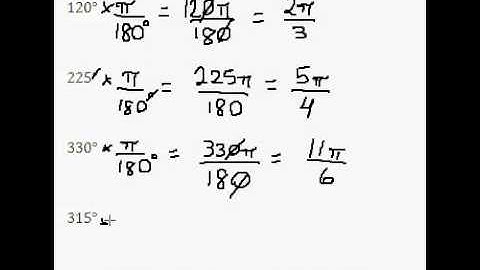 120° × π/180° = 120π/180 = 2π/3
225° × π/180° = 225π/180 = 5π/4
330° × π/180° = 330π/180 = 11π/6
315°